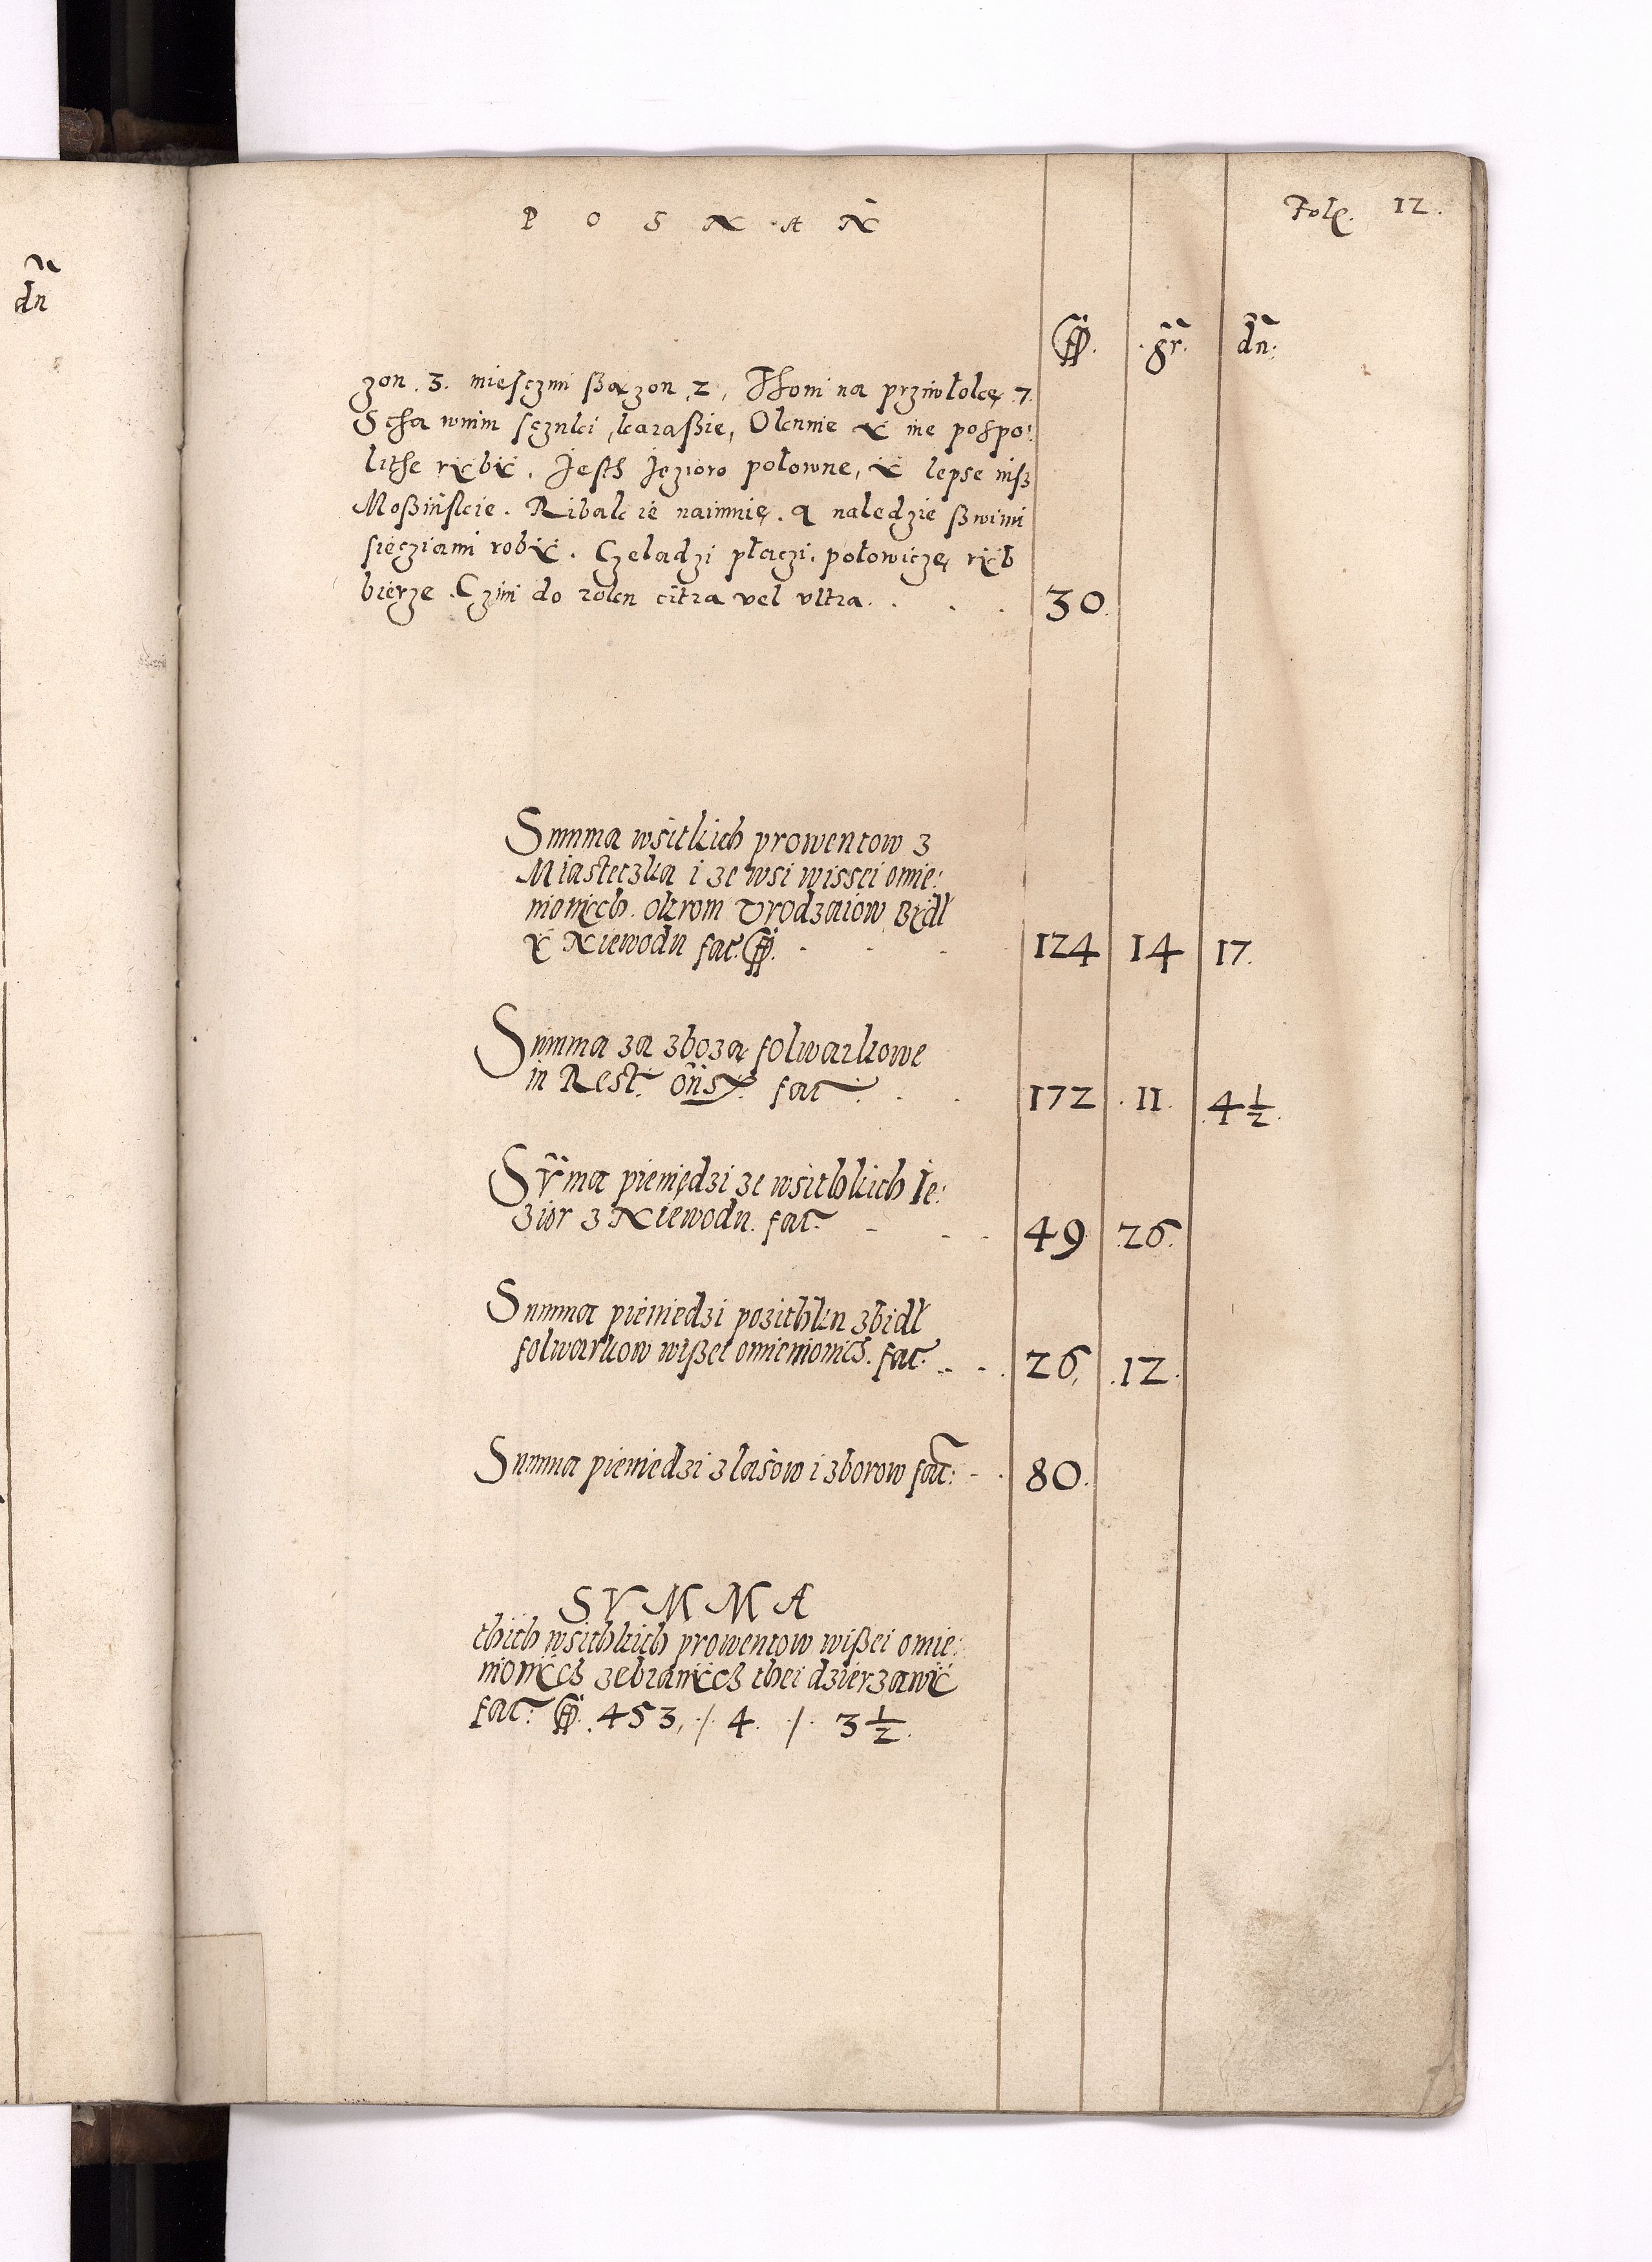 P O S N A Ñ
Fol. 12.
dñ
gr. dñ:
zon. 3. miesczmi ßązon, 2, Thoni na prziwłokę. 7.
Ssą wnim sczuki, karaßie, Okunie ÿ ine pospo:
lithe rÿbÿ. Jesth Jezioro połowne, ÿ lepse niß
Moßińskie. Ribak ie naimnię. a naledzie ßwimi
siecziami robÿ. Czeladzi płaczi. połowiczę rÿb
bierze. Czini do roku citra vel vltra. . . . 30.
Summa wsitkich prowentow z
Miasteczka i ze wsi wissei omie:
nionÿch. okrom Vrodzaiow Bÿdł
ÿ Niewodu fac. 124 14 17.
Summa za zboża folwarkowe
in Rest. fac. 172 . 11. 4 1/2.
Sṽma pieniędzi ze wsithkich Ie:
zior z Niewodu. fac. 49 26.
Summa pieniedzi pozithku zbidł
folwarkow wißei omienionich. fac. 26, .12.
Summa pieniedzi z lasow i zborow fac: 80.
SVMMA
thich wsithkich prowentow wißei omie:
nionÿch zebranÿch thei dzierzawÿ
fac: 453, /. 4. /. 3 1/2.